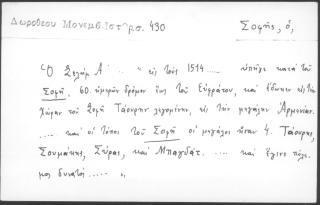 Δωροθέου Μονεμβ. Ιστορ σ. 430
Σοφής, ὁ,
"Ὁ Σελὴμ Α΄ " εἰς τοὺς 1514 ..... ὑπῆγε κατὰ τοῦ
Σοφῆ. 60. ἡμερῶν δρόμον ἕως τοῦ Εὐφράτου, καὶ ἔδωκεν εἰς τὴν
χώραν τοῦ Σοφῆ Ταύρην λεγομένην, εἰς τὴν μεγάλην Ἀρμενίαν.
..... καὶ οἱ τόποι τοῦ Σοφῆ οἱ μεγάλοι ἦταν 4. Ταύρης,
Σουμάκης, Σύρας, καὶ Μπαγδάτ. ..... καὶ ἔγινε πόλε-
μος δυνατὸς ..... "